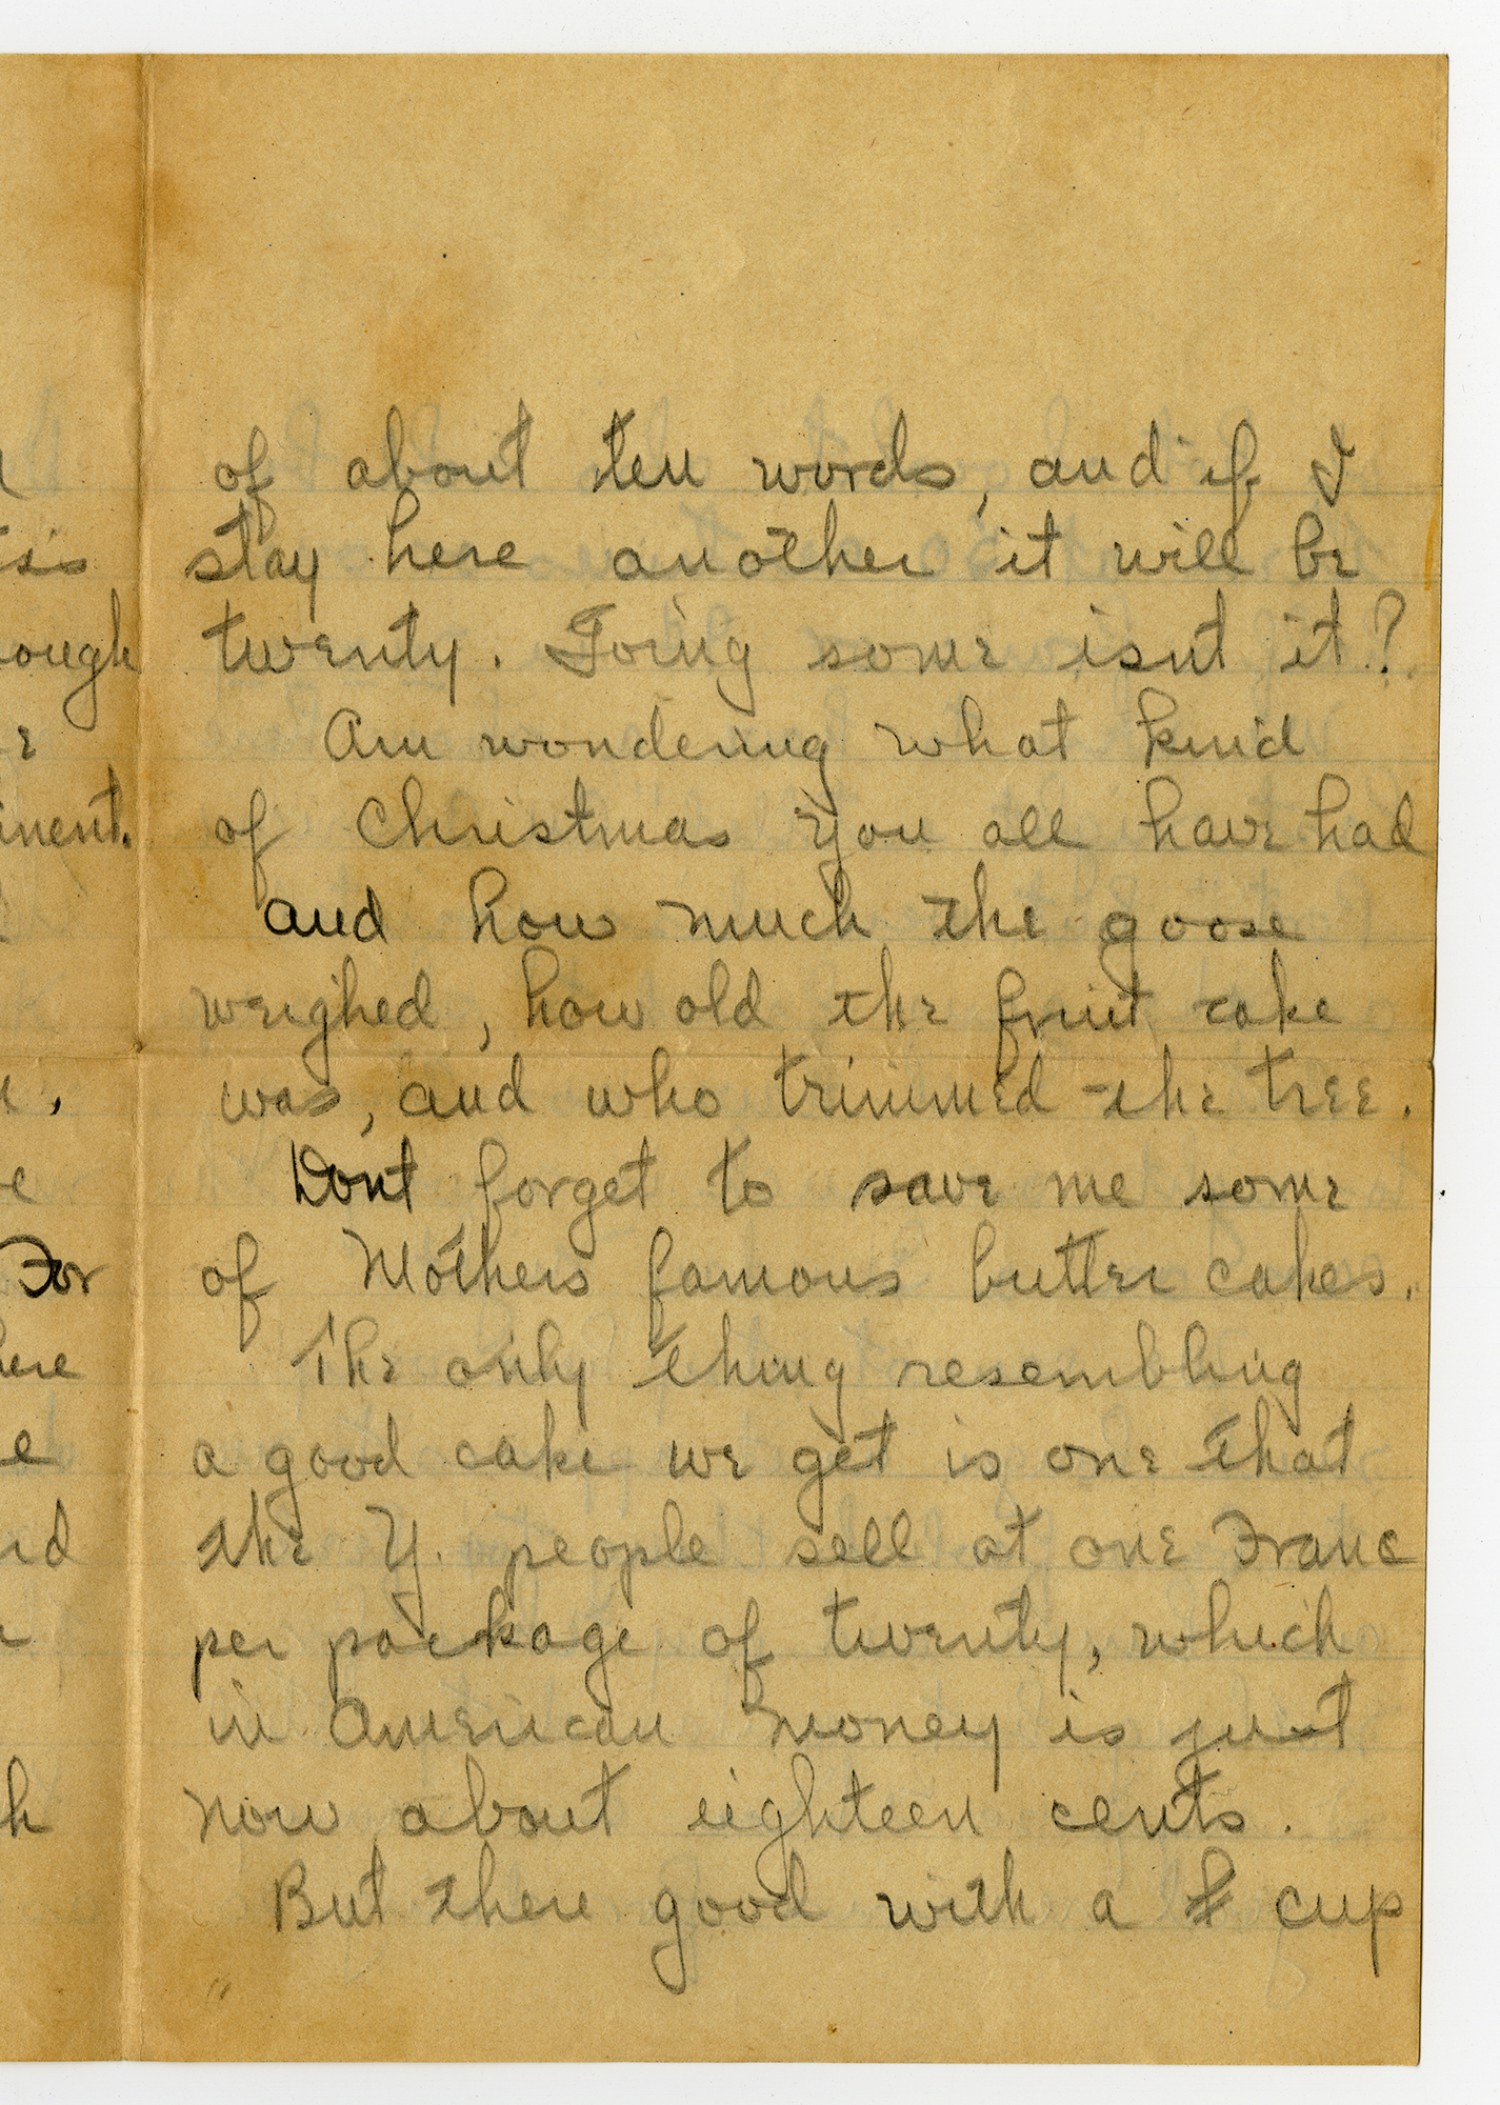 of about ten words, and if I
stay here another it will be
twenty. Going some isnt it?
Am wondering what kind
of Christmas you all have had
and how much the goose
weighed, how old the fruit cake
was, and who trimmed the tree.
Dont forget to save me some
of Mothers famous butter cakes.
The only thing resembling
a good cake we get is one that
the Y. people sell at one Franc
per package of twenty, which
in American money is just
now about eighteen cents.
But there good with a cup
ough
inent.
For